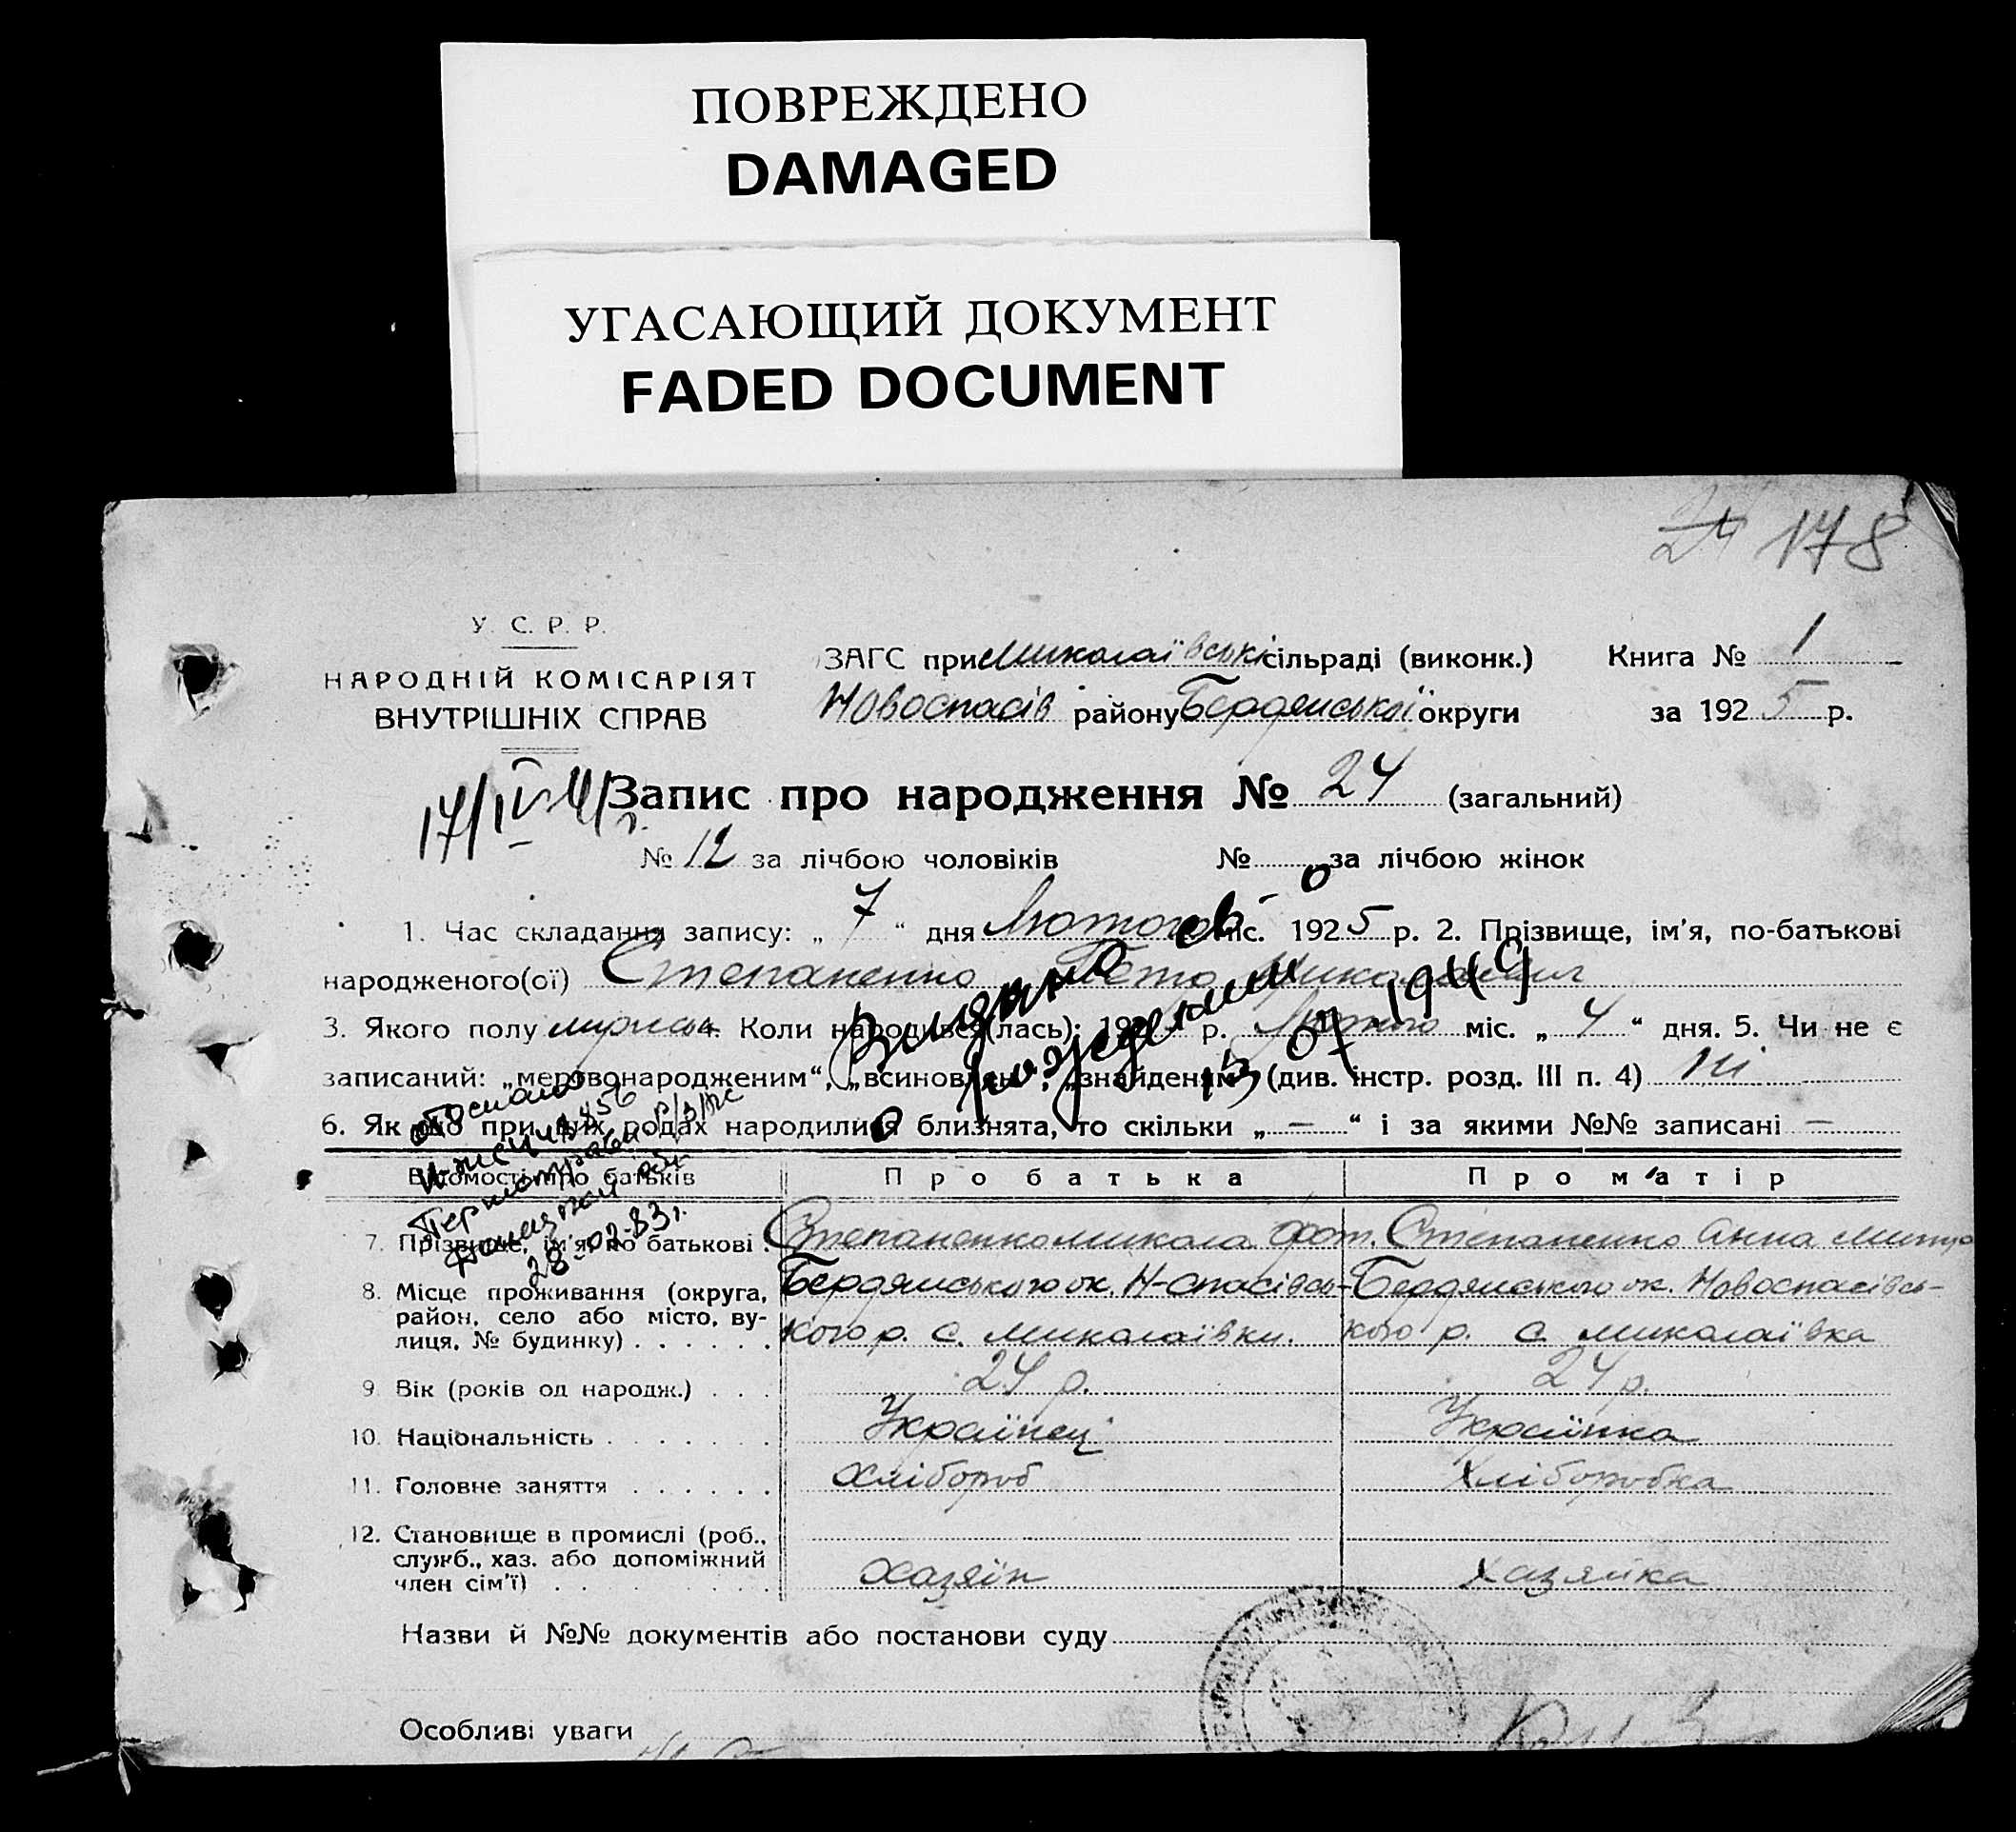 ПОВРЕЖДЕНО
DAMAGED
УГАСАЮЩИЙ ДОКУМЕНТ
FADED DOCUMENT
24 178
У. С. Р. Р.
НАРОДНІЙ КОМІСАРІЯТ
ВНУТРІШНІХ СПРАВ
ЗАГС при Миколаївські сільраді (виконк.) Книга № 1
Новоспасів району Бердянської округи за 1925 р.
17/IV
Запис про народження № 24 (загальний)
№ 12 за лічбою чоловіків № за лічбою жінок
1. Час складання запису: „ 7 “ дня Лютого міс. 1925 р. 2. Прізвище, ім'я, по-батькові
народженого(ої) Степаненко Миколаевич
3. Якого полу 4. Коли народився(лась): 192 р. Лютого міс. „ 4 “ дня. 5. Чи не є
записаний: „мертвонародженим“, „всиновлен“, „знайденим“ (див. інстр. розд. III п. 4) Ні
6. Як що при цих родах народилися близнята, то скільки „ — “ і за якими №№ записані —
Выдано св-о
о рождении
13 07 1949
28-02-83г.
Відомості про батьків Про батька Про матір
7. Прізвище, ім'я, по батькові . Степаненко Микола Степаненко Анна
8. Місце проживання (округа, Бердянського ок. Н-спасівсь- Бердянського ок. Новоспасівсь-
район, село або місто, ву- кого р. с. Миколаївки. кого р. с. Миколаївка
лиця, № будинку) . . . . . .
9. Вік (років од народж.) . . . 24 р. 24 р.
10. Національність . . . . . . . Українец Українка
11. Головне заняття . . . . . . Хлібороб Хліборобка
12. Становище в промислі (роб.,
служб., хаз. або допоміжний
член сім'ї) . . . . . . . . Хазяїн Хазяйка
Назви й №№ документів або постанови суду
Особливі уваги